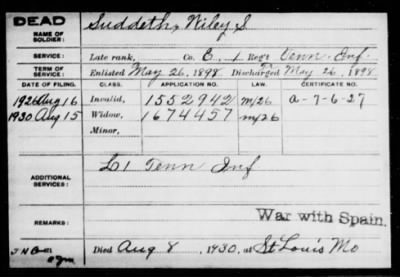 DEAD
NAME OF SOLDIER: Suddeth, Wiley S
SERVICE: Late rank, Co. B, 1 Reg't Tenn. Inf.
TERM OF SERVICE: Enlisted May 26, 1898. Discharged May 26, 1898
DATE OF FILING. CLASS. APPLICATION NO. LAW. CERTIFICATE NO.
1926 Aug 16 Invalid, 1552942 m/26 a-7-6-27
1930 Aug 15 Widow, 1674457 m/26
Minor,
ADDITIONAL SERVICES: L 1 Tenn Inf
REMARKS: War with Spain.
Died Aug 8, 1930, at St Louis Mo